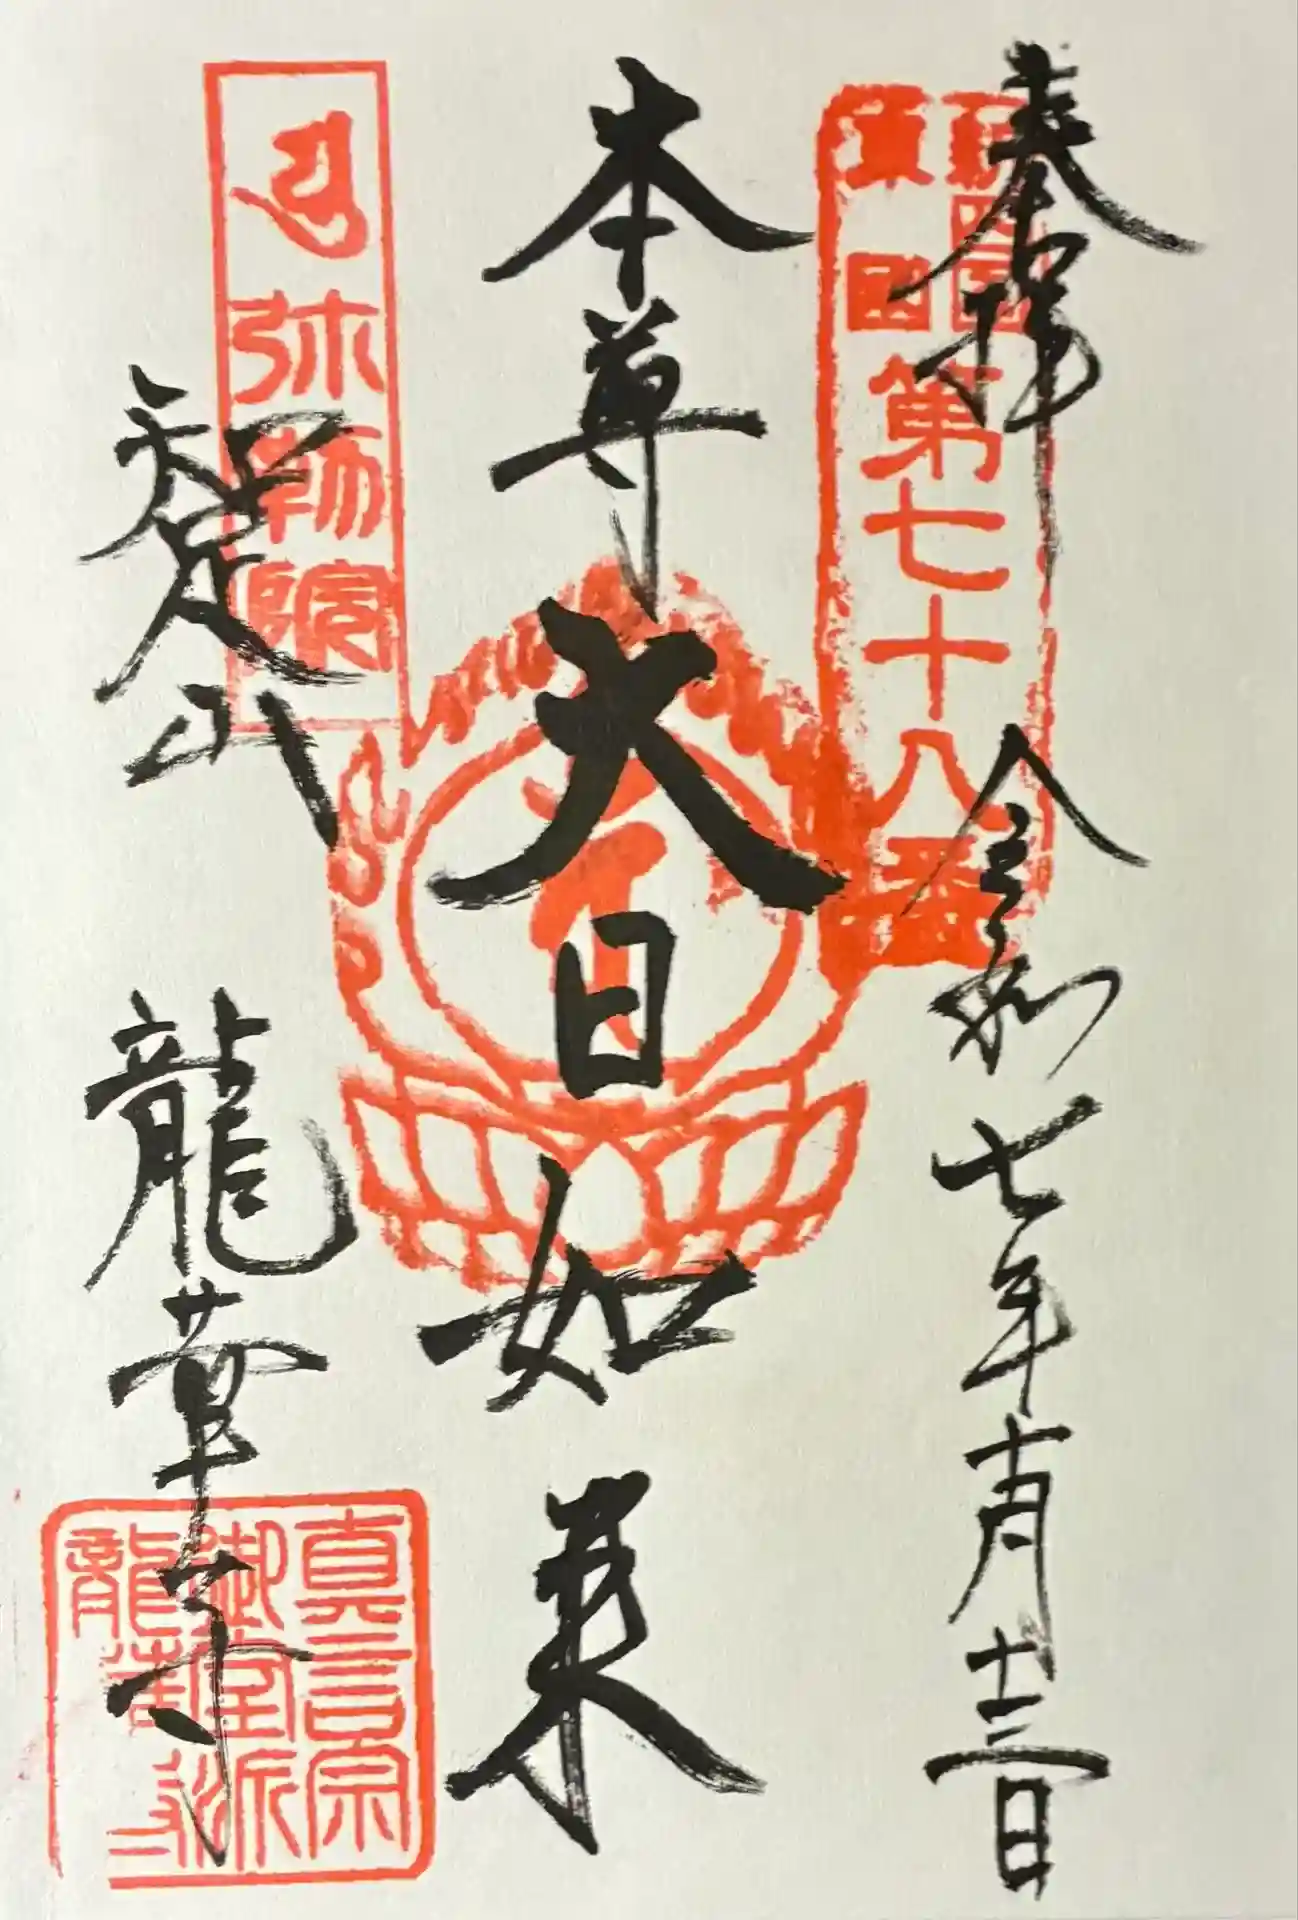 奉拝
令和七年十月十三日
四国
東国
第七十八番
本尊
大日如来
弥勒院
知足山
龍華寺
真言宗
御室派
龍華寺